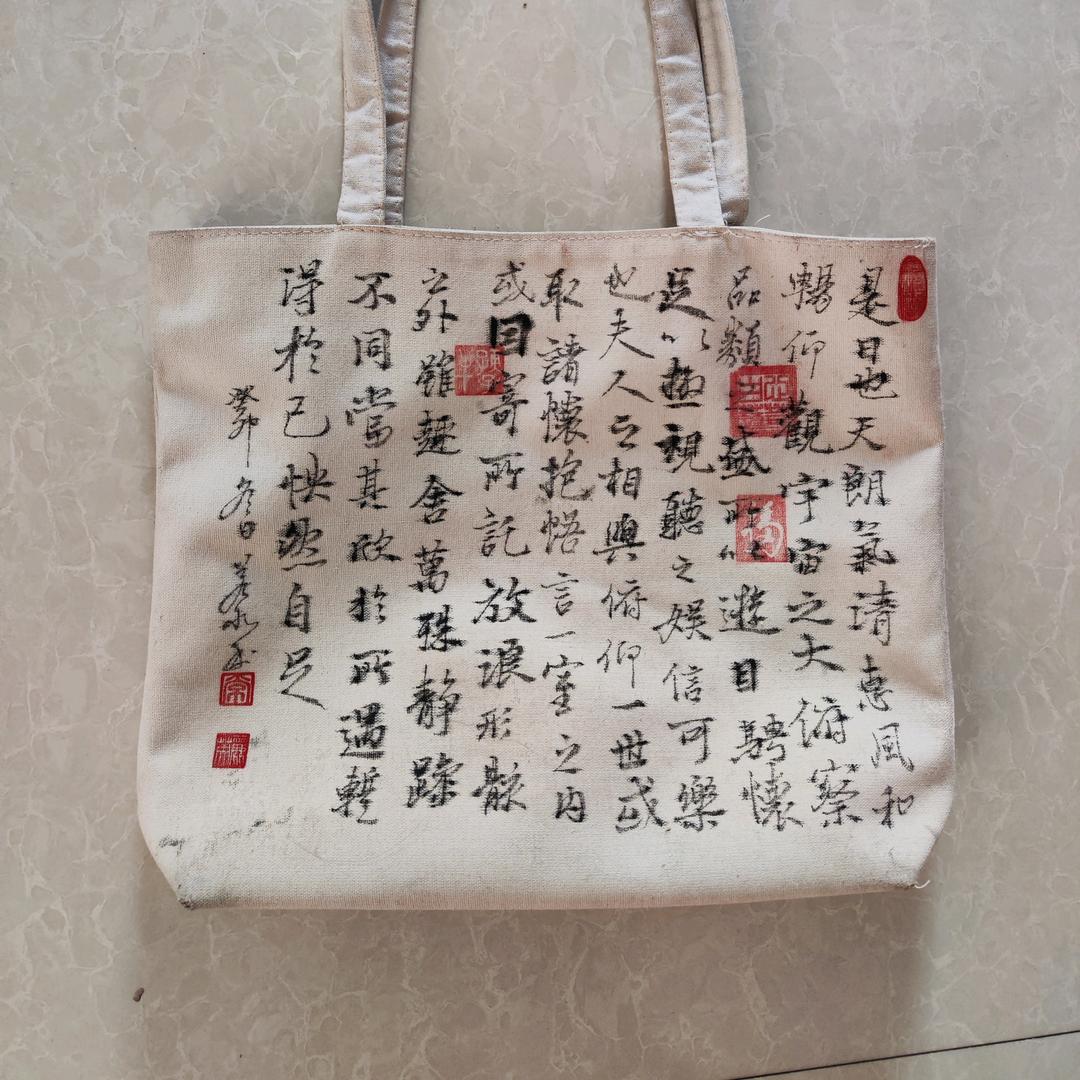 是日也天朗氣清惠風和
暢仰觀宇宙之大俯察
品類之盛所以遊目騁懷
足以極視聽之娛信可樂
也夫人之相與俯仰一世或
取諸懷抱悟言一室之内
或因寄所託放浪形骸
之外雖趣舍萬殊静躁
不同當其欣於所遇暫
得於己怏然自足
癸卯冬日